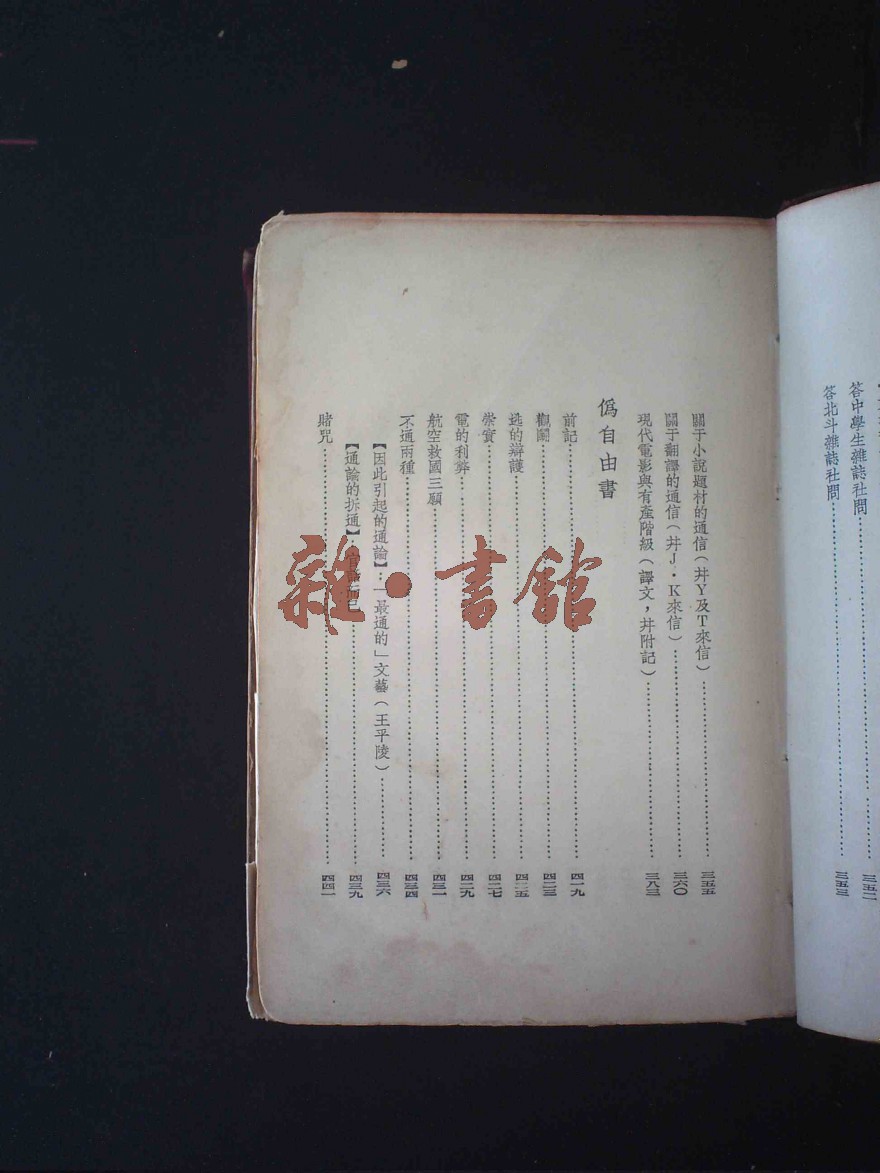 答中學生雜誌社問……三五二
答北斗雜誌社問……三五三
關于小說題材的通信(幷Y及T來信)……三五五
關于翻譯的通信(幷J·K來信)……三六〇
現代電影與有產階級(譯文,幷附記)……三八三
僞自由書
前記……四一九
觀鬭……四二三
逃的辯護……四二五
崇實……四二七
電的利弊……四二九
航空救國三願……四三一
不通兩種……四三四
【因此引起的通論】:「最通的」文藝(王平陵)……四三六
【通論的拆通】:官話而已……四三九
賭咒……四四一
雜·書館